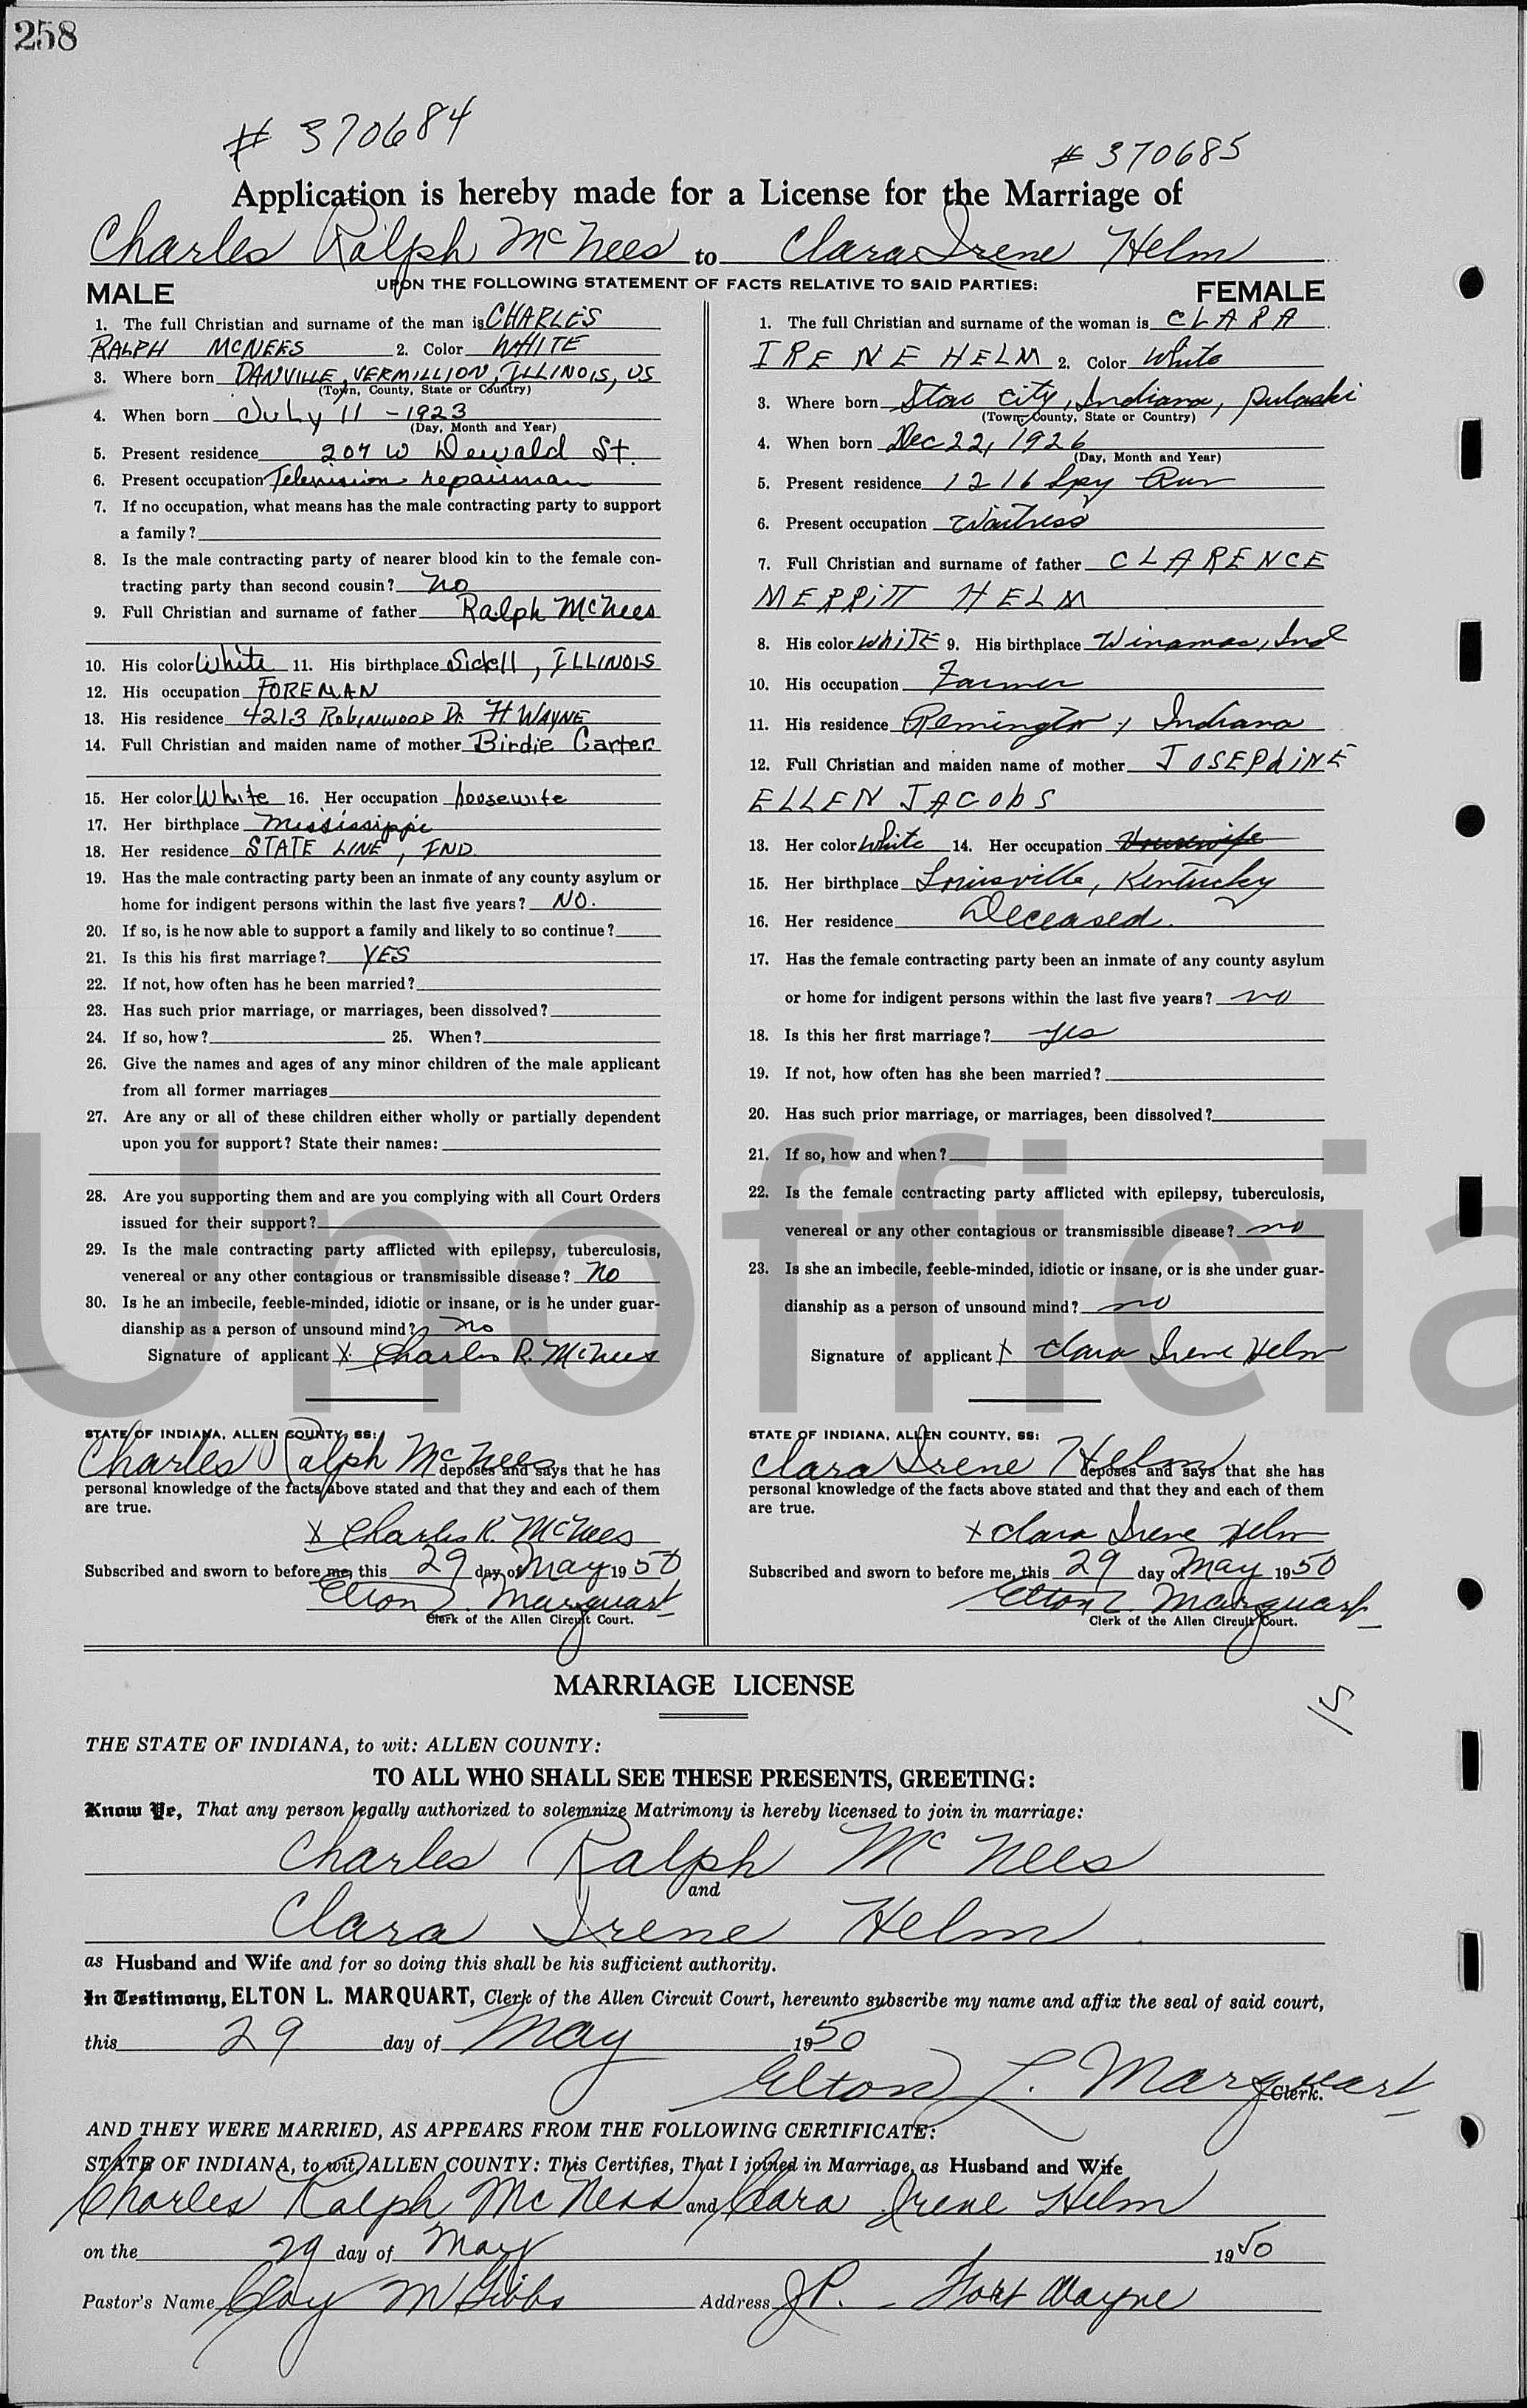 258
# 370684
# 370685
Application is hereby made for a License for the Marriage of
Charles Ralph McNees to Clara Irene Helm
UPON THE FOLLOWING STATEMENT OF FACTS RELATIVE TO SAID PARTIES:
MALE
1. The full Christian and surname of the man is CHARLES
RALPH MCNEES 2. Color WHITE
3. Where born DANVILLE, VERMILLION, ILLINOIS, US
(Town, County, State or Country)
4. When born July 11 - 1923
(Day, Month and Year)
5. Present residence 207 W Dewald St.
6. Present occupation Television repairman
7. If no occupation, what means has the male contracting party to support
a family?
8. Is the male contracting party of nearer blood kin to the female con-
tracting party than second cousin? no
9. Full Christian and surname of father Ralph McNees
10. His color White 11. His birthplace Sidell, ILLINOIS
12. His occupation FOREMAN
13. His residence 4213 ROBINWOOD Dr. Ft WAYNE
14. Full Christian and maiden name of mother Birdie Carter
15. Her color White 16. Her occupation housewife
17. Her birthplace Mississippi
18. Her residence STATE LINE, IND.
19. Has the male contracting party been an inmate of any county asylum or
home for indigent persons within the last five years? NO.
20. If so, is he now able to support a family and likely to so continue?
21. Is this his first marriage? YES
22. If not, how often has he been married?
23. Has such prior marriage, or marriages, been dissolved?
24. If so, how? 25. When?
26. Give the names and ages of any minor children of the male applicant
from all former marriages
27. Are any or all of these children either wholly or partially dependent
upon you for support? State their names:
28. Are you supporting them and are you complying with all Court Orders
issued for their support?
29. Is the male contracting party afflicted with epilepsy, tuberculosis,
venereal or any other contagious or transmissible disease? No
30. Is he an imbecile, feeble-minded, idiotic or insane, or is he under guar-
dianship as a person of unsound mind? no
Signature of applicant X Charles R. McNees
STATE OF INDIANA, ALLEN COUNTY, SS:
Charles Ralph McNees deposes and says that he has
personal knowledge of the facts above stated and that they and each of them
are true.
X Charles R. McNees
Subscribed and sworn to before me, this 29 day of May 1950
Elton L. Marquart
Clerk of the Allen Circuit Court.
FEMALE
1. The full Christian and surname of the woman is CLARA
IRENE HELM 2. Color White
3. Where born Star City, Indiana, Pulaski
(Town, County, State or Country)
4. When born Dec 22, 1926
(Day, Month and Year)
5. Present residence 1216 Spy Run
6. Present occupation Waitress
7. Full Christian and surname of father CLARENCE
MERRITT HELM
8. His color WHITE 9. His birthplace Winamac, Ind
10. His occupation Farmer
11. His residence Remington, Indiana
12. Full Christian and maiden name of mother JOSEPHINE
ELLEN JACOBS
13. Her color White 14. Her occupation Housewife
15. Her birthplace Louisville, Kentucky
16. Her residence Deceased.
17. Has the female contracting party been an inmate of any county asylum
or home for indigent persons within the last five years? no
18. Is this her first marriage? yes
19. If not, how often has she been married?
20. Has such prior marriage, or marriages, been dissolved?
21. If so, how and when?
22. Is the female contracting party afflicted with epilepsy, tuberculosis,
venereal or any other contagious or transmissible disease? no
23. Is she an imbecile, feeble-minded, idiotic or insane, or is she under guar-
dianship as a person of unsound mind? no
Signature of applicant X Clara Irene Helm
STATE OF INDIANA, ALLEN COUNTY, SS:
Clara Irene Helm deposes and says that she has
personal knowledge of the facts above stated and that they and each of them
are true.
X Clara Irene Helm
Subscribed and sworn to before me, this 29 day of May 1950
Elton L. Marquart
Clerk of the Allen Circuit Court.
Unofficia
MARRIAGE LICENSE
THE STATE OF INDIANA, to wit: ALLEN COUNTY:
TO ALL WHO SHALL SEE THESE PRESENTS, GREETING:
Know Ye, That any person legally authorized to solemnize Matrimony is hereby licensed to join in marriage:
Charles Ralph McNees
and
Clara Irene Helm
as Husband and Wife and for so doing this shall be his sufficient authority.
In Testimony, ELTON L. MARQUART, Clerk of the Allen Circuit Court, hereunto subscribe my name and affix the seal of said court,
this 29 day of May 1950
Elton L. Marquart Clerk.
AND THEY WERE MARRIED, AS APPEARS FROM THE FOLLOWING CERTIFICATE:
STATE OF INDIANA, to wit, ALLEN COUNTY: This Certifies, That I joined in Marriage, as Husband and Wife
Charles Ralph McNees and Clara Irene Helm
on the 29 day of May 1950
Pastor's Name Clay M Gibbs Address J.P. - Fort Wayne